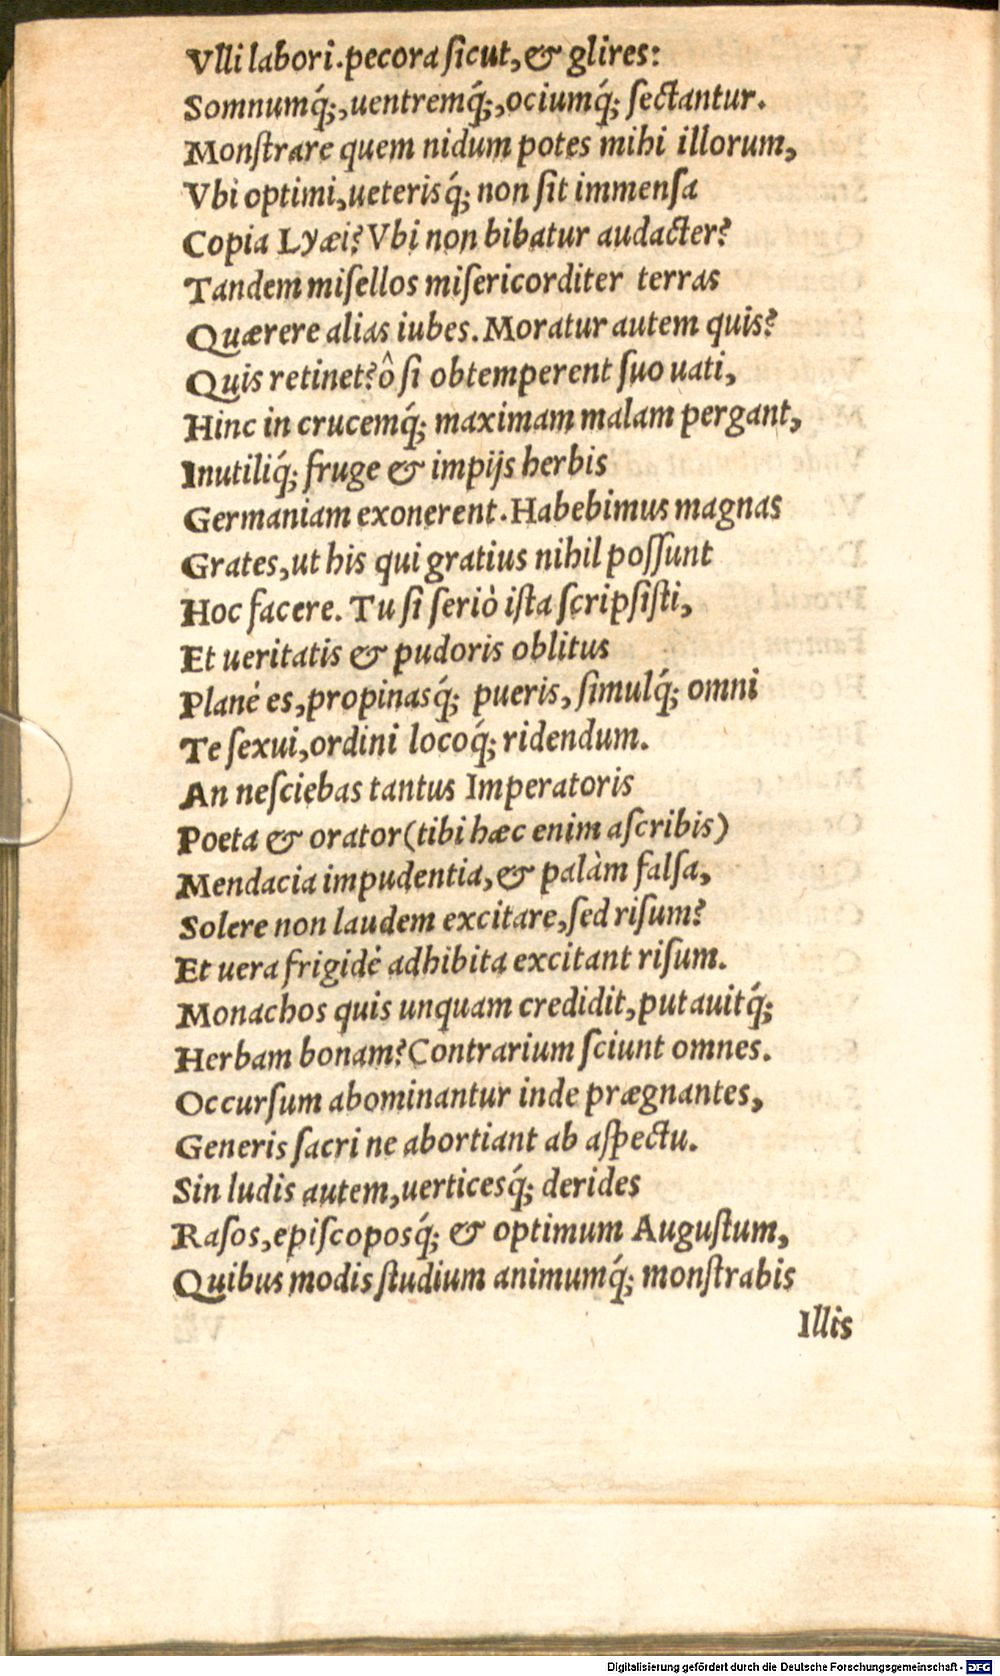 Vlli labori. pecora ſicut, & glires:
Somnumq́;, uentremq́;, ociumq́; ſectantur.
Monſtrare quem nidum potes mihi illorum,
Vbi optimi, ueterisq́; non ſit immenſa
Copia Lyæi? Vbi non bibatur audacter?
Tandem miſellos miſericorditer terras
Quærere alias iubes. Moratur autem quis?
Quis retinet? ô ſi obtemperent ſuo uati,
Hinc in crucemq́; maximam malam pergant,
Inutiliq́; fruge & impijs herbis
Germaniam exonerent. Habebimus magnas
Grates, ut his qui gratius nihil poſſunt
Hoc facere. Tu ſi seriò iſta ſcripſiſti,
Et ueritatis & pudoris oblitus
Planè es, propinasq́; pueris, ſimulq́; omni
Te ſexui, ordini locoq́; ridendum.
An neſciebas tantus Imperatoris
Poeta & orator (tibi hæc enim aſcribis)
Mendacia impudentia, & palàm falſa,
Solere non laudem excitare, ſed riſum?
Et uera frigidè adhibita excitant riſum.
Monachos quis unquam credidit, putauitq́;
Herbam bonam? Contrarium ſciunt omnes.
Occurſum abominantur inde prægnantes,
Generis ſacri ne abortiant ab aſpectu.
Sin ludis autem, uerticesq́; derides
Raſos, epiſcoposq́; & optimum Auguſtum,
Quibus modis ſtudium animumq́; monſtrabis
Illis
Digitalisierung gefördert durch die Deutsche Forschungsgemeinschaft - DFG